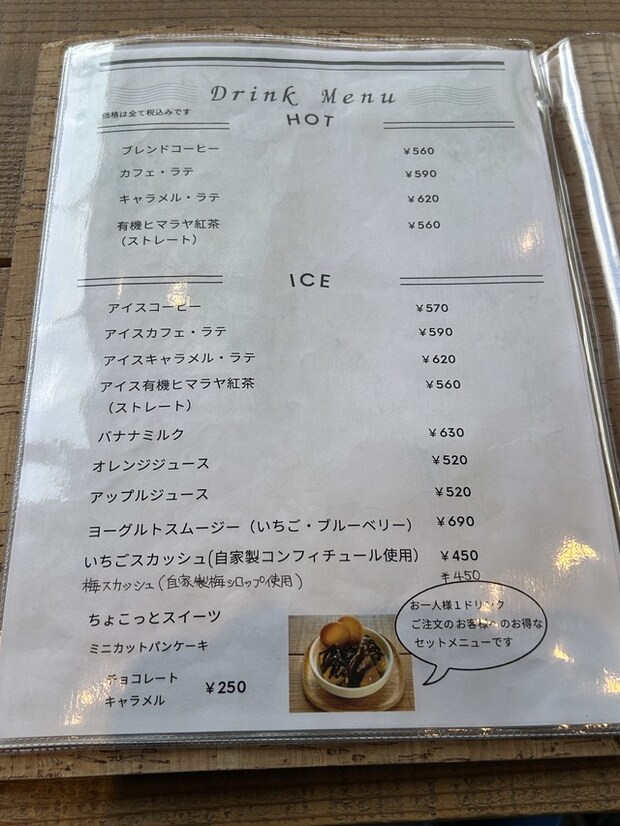 Drink Menu
価格は全て税込みです
HOT
ブレンドコーヒー ¥560
カフェ・ラテ ¥590
キャラメル・ラテ ¥620
有機ヒマラヤ紅茶 ¥560
(ストレート)
ICE
アイスコーヒー ¥570
アイスカフェ・ラテ ¥590
アイスキャラメル・ラテ ¥620
アイス有機ヒマラヤ紅茶 ¥560
(ストレート)
バナナミルク ¥630
オレンジジュース ¥520
アップルジュース ¥520
ヨーグルトスムージー(いちご・ブルーベリー) ¥690
いちごスカッシュ(自家製コンフィチュール使用) ¥450
梅スカッシュ(自家製梅シロップ使用) ¥450
ちょこっとスイーツ
ミニカットパンケーキ
チョコレート
キャラメル ¥250
お一人様1ドリンク
ご注文のお客様へのお得な
セットメニューです